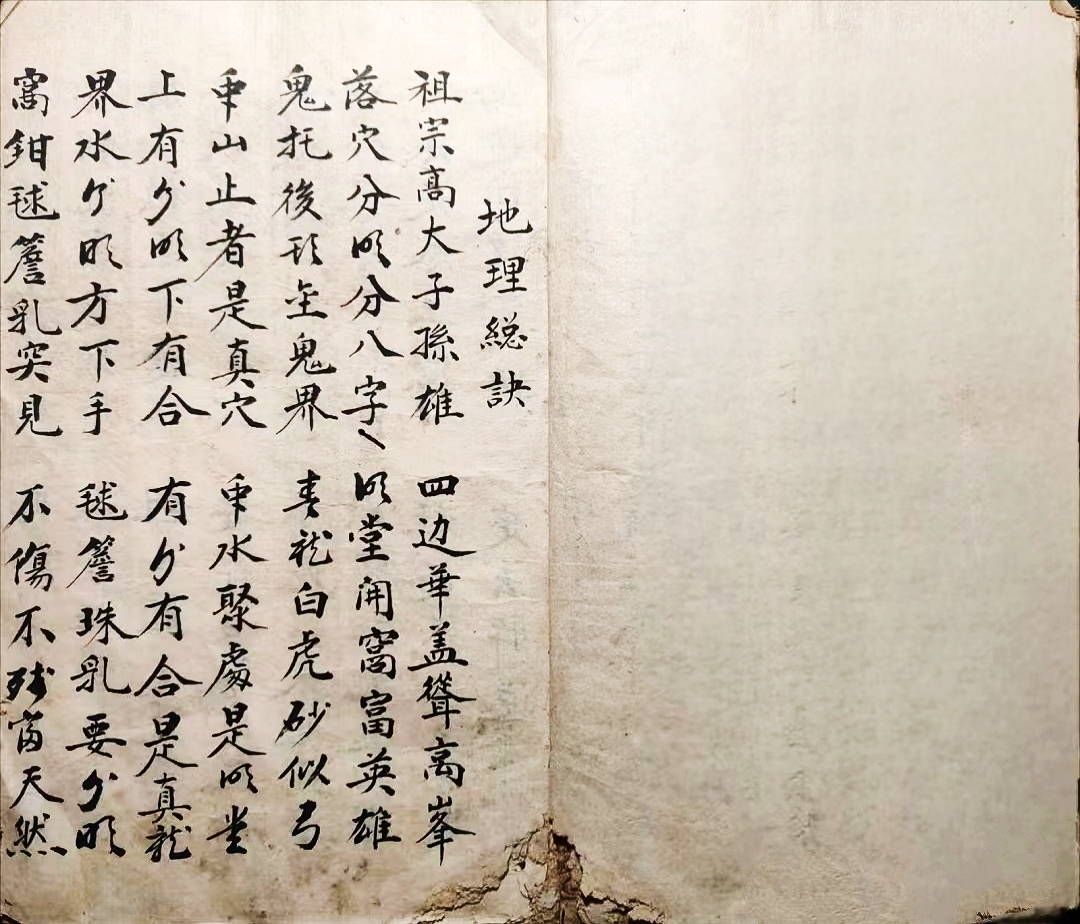 地理総訣
祖宗高大子孫雄 四边華盖聳高峯
落穴分明分八字 明堂開窩富英雄
鬼托後 鬼界 青龍白虎砂似弓
山止者是真穴 水聚處是明堂
上有分明下有合 有分有合是真龍
界水分明方下手 毬簷珠乳要分明
窩鉗毬簷乳突見 不傷不残富天然